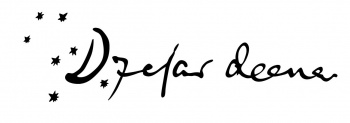 Dzejas deena